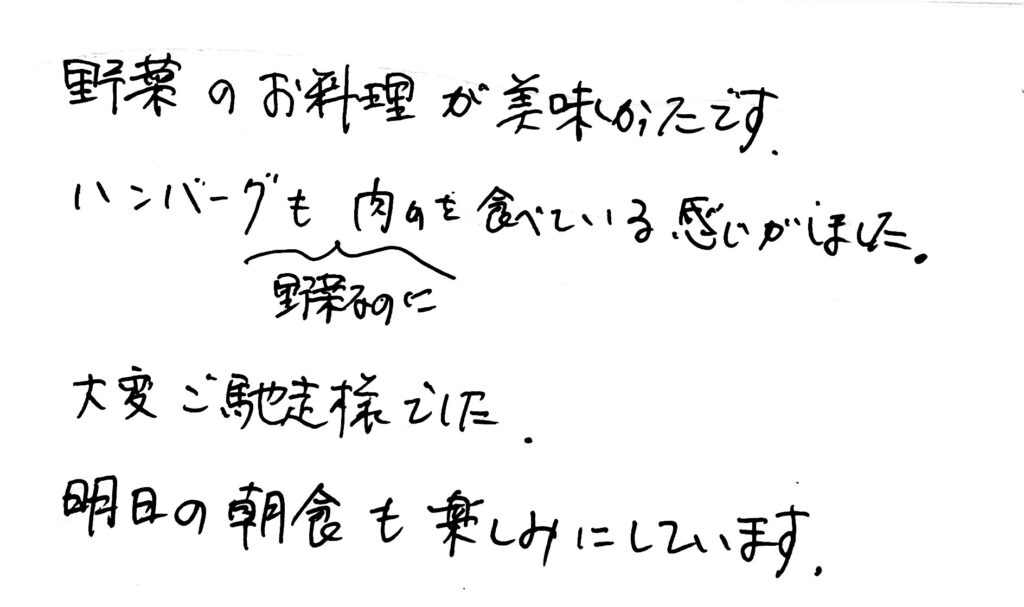 野菜のお料理が美味しかったです.
ハンバーグも肉のを食べている感じがしました.
野菜なのに
大変ご馳走様でした.
明日の朝食も楽しみにしています.